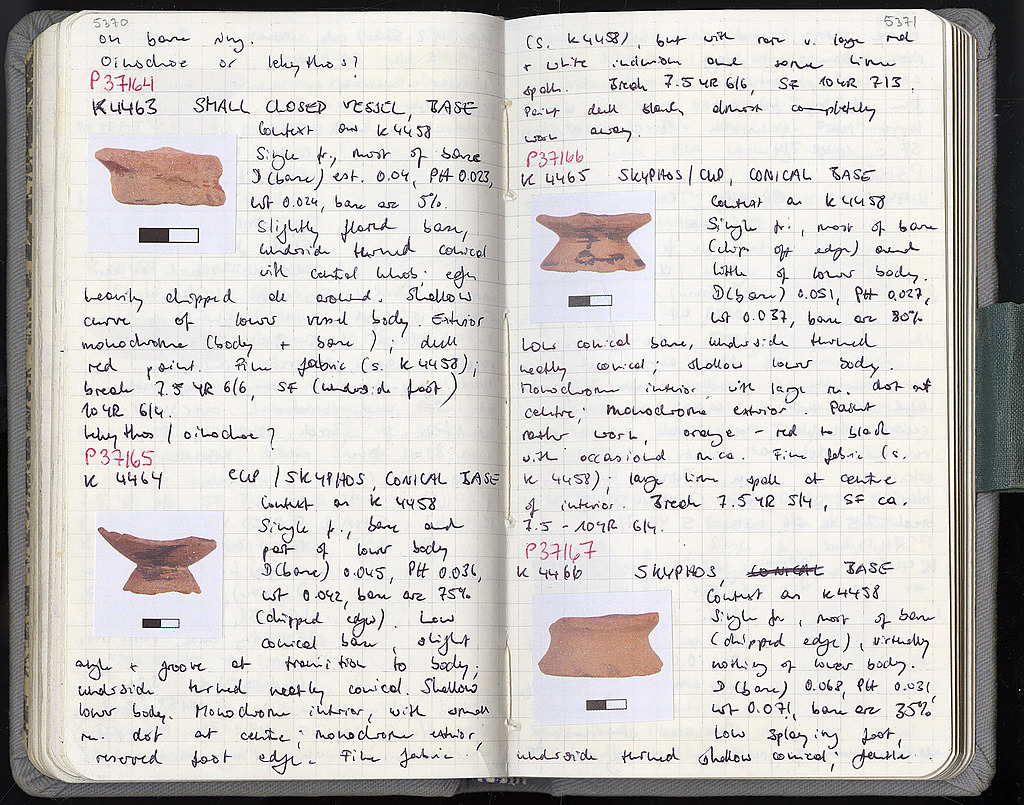 5370
on base ring.
Oinochoe or lekythos?
P37164
K4463 SMALL CLOSED VESSEL, BASE
Context as K4458
Single fr., most of base
D(base) est. 0.04, PH 0.023,
wt 0.024, base arc 5%.
Slightly flared base,
underside turned conical
with central knob; edge
heavily chipped all around. Shallow
curve of lower vessel body. Exterior
monochrome (body + base); dull
red paint. Fine fabric (s. K4458);
break 7.5 YR 6/6, SF (underside foot)
10YR 6/4.
lekythos / oinochoe?
P37165
K 4464 CUP / SKYPHOS, CONICAL BASE
Context as K 4458
Single fr., base and
part of lower body
D(base) 0.045, PH 0.036,
wt 0.042, base arc 75%
(chipped edge). Low
conical base, slight
angle + groove at transition to body;
underside turned neatly conical. Shallow
lower body. Monochrome interior, with small
rs. dot at centre; monochrome exterior,
reserved foot edge. Fine fabric
5371
(s. K4458), but with rare v. large red
+ white inclusion and some lime
spall. Break 7.5 YR 6/6, SF 10YR 7/3.
Paint dull black, almost completely
worn away.
P37166
K 4465 SKYPHOS/CUP, CONICAL BASE
Context as K 4458
Single fr., most of base
(chip off edge) and
little of lower body.
D(base) 0.051, PH 0.027,
wt 0.037, base arc 80%
Low conical base, underside turned
neatly conical; shallow lower body.
Monochrome interior with large rs. dot at
centre; monochrome exterior. Paint
rather worn, orange-red to black
with occasional mica. Fine fabric (s.
K 4458); large lime spall at centre
of interior. Break 7.5YR 5/4, SF ca.
7.5-10YR 6/4.
P37167
K 4466 SKYPHOS, CONICAL BASE
Context as K4458
Single fr., most of base
(chipped edge), virtually
nothing of lower body.
D (base) 0.068, PH 0.031,
wt 0.071, base arc 35%
Low splaying foot,
underside turned shallow conical; gentle